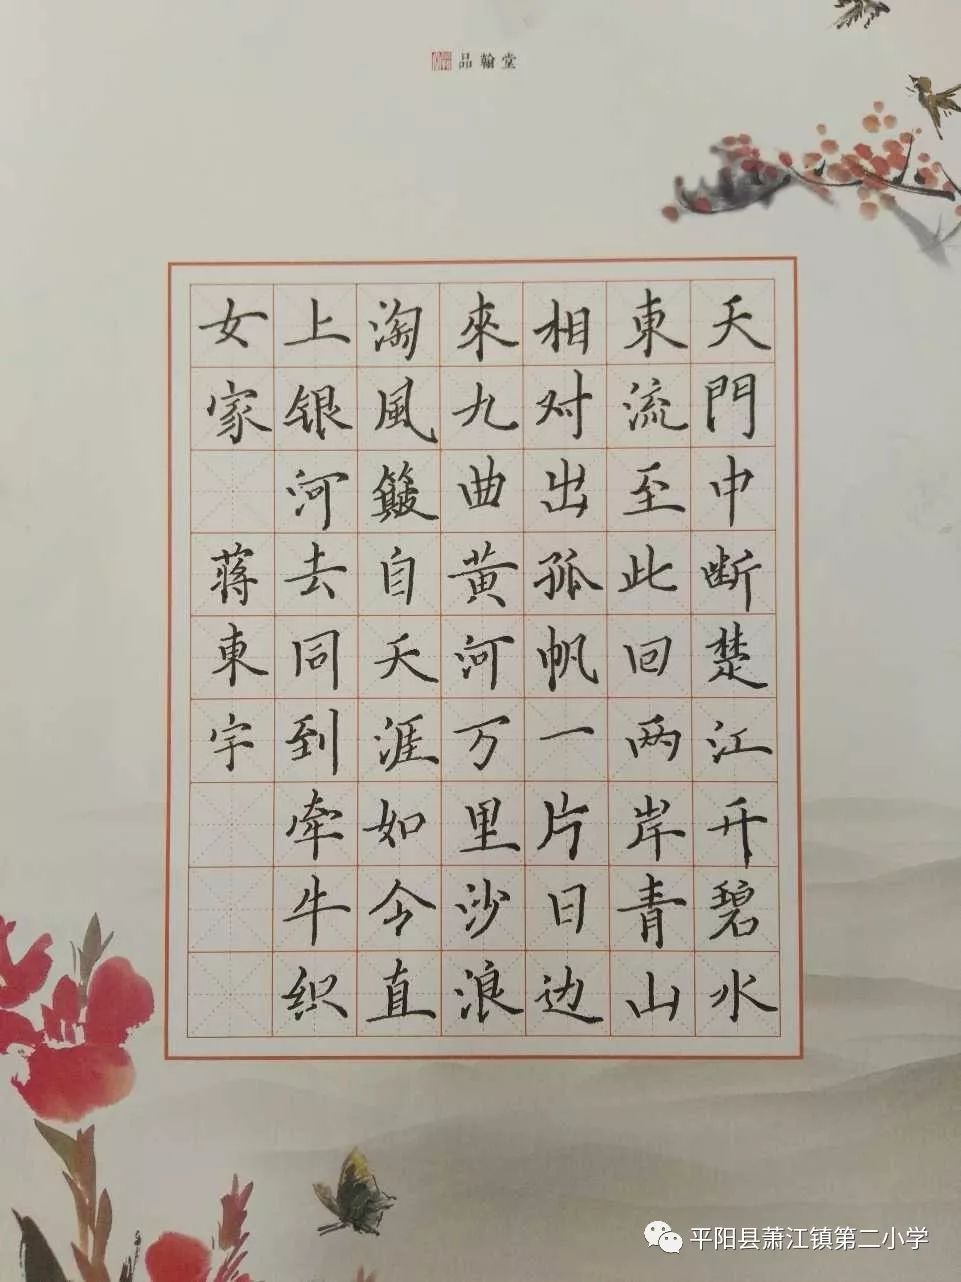 品翰堂
天門中断楚江开碧水
東流至此回两岸青山
相对出孤帆一片日边
來九曲黄河万里沙浪
淘風簸自天涯如今直
上银河去同到牵牛织
女家 蒋東宇
平阳县萧江镇第二小学